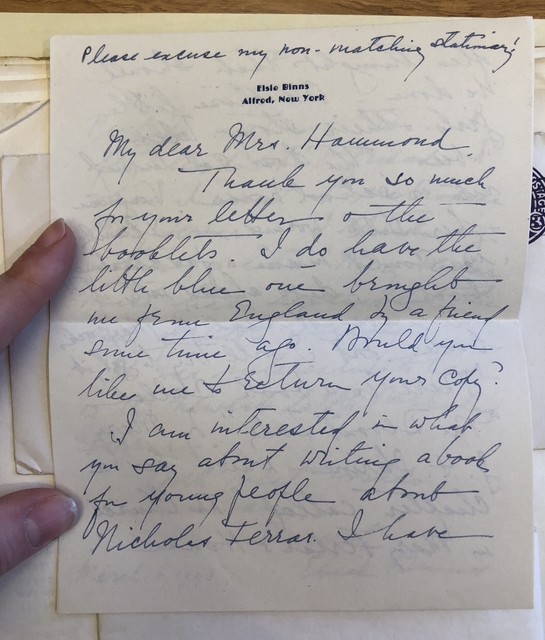 Please excuse my non-matching stationary!
Elsie Binns
Alfred, New York
My dear Mrs. Hammond,
Thank you so much
for your letter & the
booklets. I do have the
little blue one brought
me from England by a friend
some time ago. Would you
like me to return your copy?
I am interested in what
you say about writing a book
for young people about
Nicholas Ferrar. I have